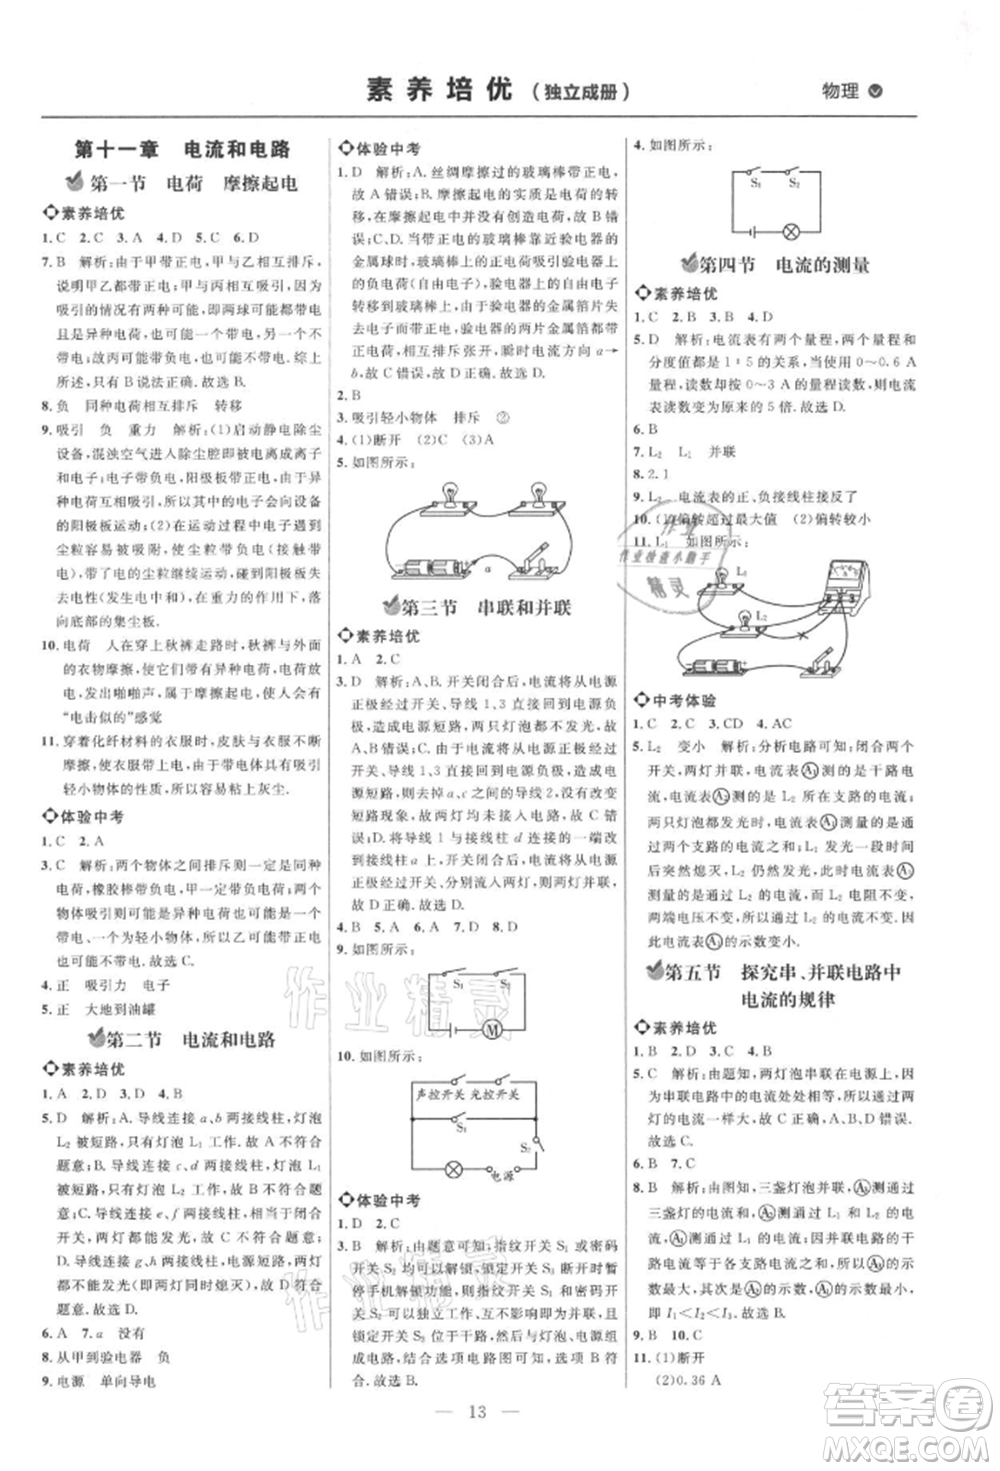 素养培优(独立成册)
物理
第十一章 电流和电路
第一节 电荷 摩擦起电
素养培优
1.C 2.C 3.A 4.D 5.C 6.D
7.B 解析:由于甲带正电,甲与丙排斥,
说明甲丙带正电;甲与乙吸引,因为
吸引的情况有两种可能,即两球可能
且是异种电荷,也可能一个带电一个
不带电,故丙可能不带电.综上
所述,只有B说法正确.故选B.
8.负 同种电荷互相排斥 转移
9.吸引 负 重力 解析:(1)启动静电除尘
设备,混浊空气进入除尘腔匠后,离子
发生电离,电子带负电,阳极板带正电,由于
异种电荷相互吸引,所以电子会向设备
的阳极板运动;(2)在运动过程中电子与
尘粒碰撞,使尘粒带上负电,所以负离
子带了电的尘粒继续运动,打在阳极板上
失去电性;(3)由于重力的作用,尘粒会落
向底部的集尘板.
10.电荷 人在穿上秋裤走路时,秋裤与外面
的衣物摩擦,就会带上异种电荷,异种电
荷接触,发出啪啪声,属于摩擦起电,会有
“电击似的”感觉
11.穿着化纤材料的衣服时,皮肤与衣服不断
摩擦,使衣服带电,带电体具有能够吸引
轻小物体的性质,所以容易粘上灰尘.
体验中考
1.C 2.A
3.C 解析:两个物体之间排斥则一定是同种
电荷,橡胶棒带负电,甲一定带负电;两个
物体吸引则可能是异种电荷,也可能一个
带电、一个为轻小物体,所以乙可能带正
电,也可能不带电.故选C.
4.正 吸引力 电子
5.正 大地到油罐
第二节 电流和电路
素养培优
1.A 2.D 3.D 4.B
5.D 解析:A.导线连接a、b两接线柱,灯泡
L₂被短路,只有灯泡L₁工作.故A不符合
题意;B.导线连接c、d两接线柱,灯泡L₁
被短路,只有灯泡L₂工作.故B不符合题
意;C.导线连接e、f两接线柱,两灯泡串
联,都能发光,能够工作.故C不符合题意;
D.导线连接g、h两接线柱,电源短路,两灯
都不能工作(即两灯同时熄灭).故D符合
题意.故选D.
6.A 7.a 没有
8.从甲到验电器 负
9.电源 单向导电
体验中考
1.D 解析:A.丝绸摩擦过的玻璃棒带正电,
故A错误;B.摩擦起电的实质是电荷的转
移,在摩擦起电中并没有创造电荷,故B错
误;C、D.当带正电的玻璃棒靠近验电器的
金属球时,玻璃棒上的正电荷吸引验电器上
的负电荷(自由电子),验电器的自由电子
转移到玻璃棒上,验电器的金属箔片失去
电子而带正电,验电器的两片金属箔片因
带同种电荷相互排斥张开,瞬时电流方向a→
b,故C错误,D正确.故选D.
2.B
3.吸引轻小物体 排斥 ②
4.(1)断开 (2)C (3)A
5.如图所示:
a
第三节 串联和并联
素养培优
1.A 2.C
3.D 解析:A、B.开关闭合后,电流将从电源
正极流经a、c、导线1、3直接回到电源负极,
造成电源短路,两只灯泡都不发光,故A、B
错误;C.由于电流从电源正极流经a、c、
导线1、3会造成电源短路,电源可能会烧
坏,则去掉a、c之间的导线2,没有出现电源
短路现象,但是两灯均未接入电路.故C
错误;D.将导线1与接线柱d连接的一端改
接到接线柱b上,开关闭合后,电流从电源
正极流经开关,分别流入两灯,即两灯并联,
故D正确.故选D.
4.B 5.A 6.A 7.D 8.D
9.如图所示:
S₁ S₂ M
10.如图所示:
声控开关 光控开关
S₁ S₂
电源
体验中考
1.D 2.C
3.B 解析:由题意可知:指纹开关S₁或密码
开关S₂均可以解锁,锁定开关S₃断开时暂
暂停手机解锁功能,则指纹开关S₁与密码
开关S₂应并联,且与灯泡、电源组成闭合电路,
锁定开关S₃位于干路,然后与灯泡、电源组
成电路,结合选项电路图可知,选项B符合
题意.故选B.
4.如图所示:
S₁ S₂
第四节 电流的测量
素养培优
1.C 2.B 3.B 4.D
5.D 解析:电流表有两个量程,两个量程和
分度值都是1∶5的关系,当使用0~0.6 A
量程,读数却按0~3 A的量程读数,则电流
表读数变为原来的5倍.故选D.
6.B
7.L₂ L₁ 并联
8.2.1
9.L₂ 电流表的正、负接线柱接反了
10.(1)偏转超过最大值 (2)偏转较小
11.L₁ 如图所示:
L₁
L₂
中考体验
1.C 2.C 3.CD 4.AC
5.L₂ 变小 解析:分析电路可知:闭合两个
开关,两灯并联,电流表A₁测的是干路电
流,电流表A₂测的是L₂所在支路的电流,
两个灯泡都发光时,电流表A₁测量的是通
过两个支路的电流之和,发光一段时间,
后突然熄灭,L₂仍然发光,L₂电阻不变,
两端电压不变,所以L₂的电流不变,
因此电流表A₁的示数变小.
第五节 探究串、并联电路中
电流的规律
素养培优
1.B 2.D 3.C 4.D
5.C 解析:由题知,两灯泡串联在电源上,因
为串联电路中的电流处处相等,所以两
灯的电流一样大,故C正确,A、B、D错误.
故选C.
6.A 7.B
8.B 解析:由图知,三盏灯泡并联,A₃测通过
三盏灯的电流和,A₂测通过两盏灯的电流
和,A₁测一盏灯的电流;因为并联电路中干
路电流等于各支路电流之和,所以A₃的示
数最大,A₁的示数最小,即I₁<I₂<I₃.
故选B.
9.B 10.C
11.(1)断开
(2)0.36 A
13
作业精灵
作业检查小助手
精灵
答案圈
MXQE.COM